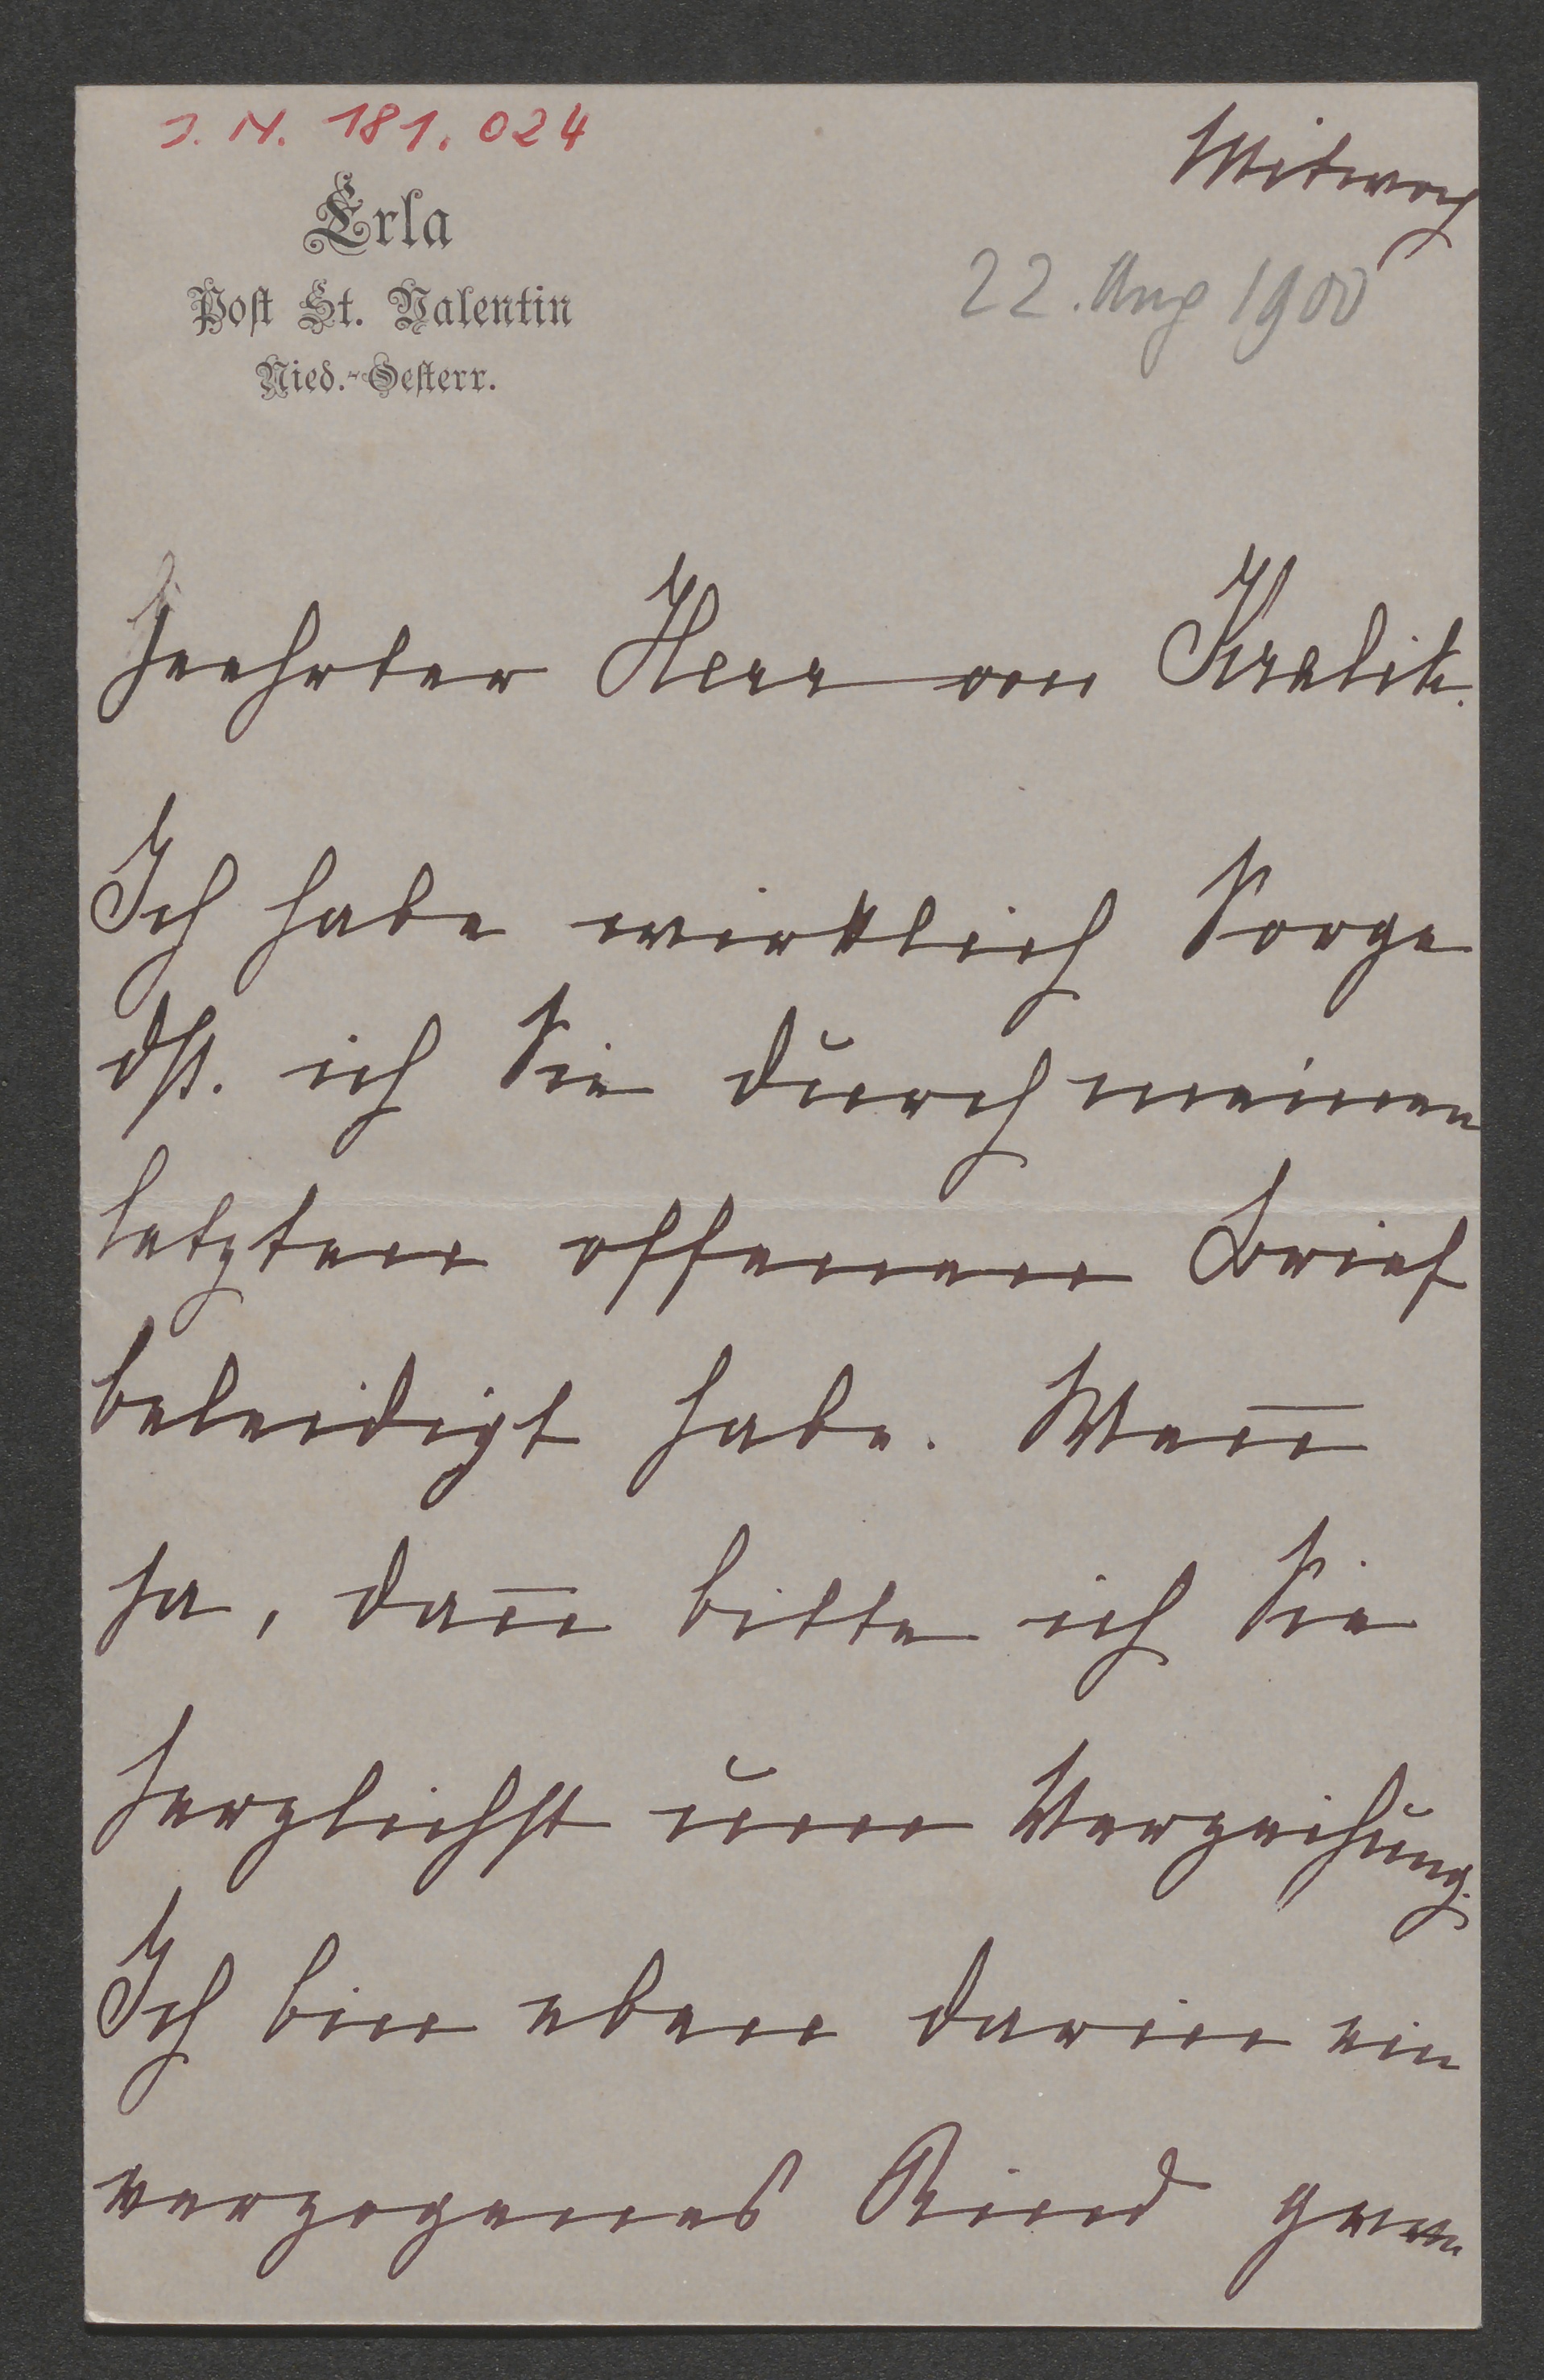 J. N. 181.024
Erla
Post St. Valentin
Nied.-Oesterr.
Mitwoch
22. Aug 1900
Geehrter Herr von Kralik.
Ich habe wirklich Sorge
dß. ich Sie durch meinen
letzten offenen Brief
beleidigt habe. Wen̅
ja, dan̅ bitte ich Sie
herzlichst um Verzeihung.
Ich bin eben darin ein
verzogenes Kind